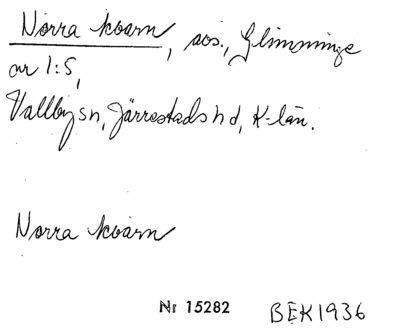 Norra kvarn, avs., Glimminge
nr 1:5,
Vallby sn, Järrestads hd, K-län.
Norra kvarn
Nr 15282 BEK1936